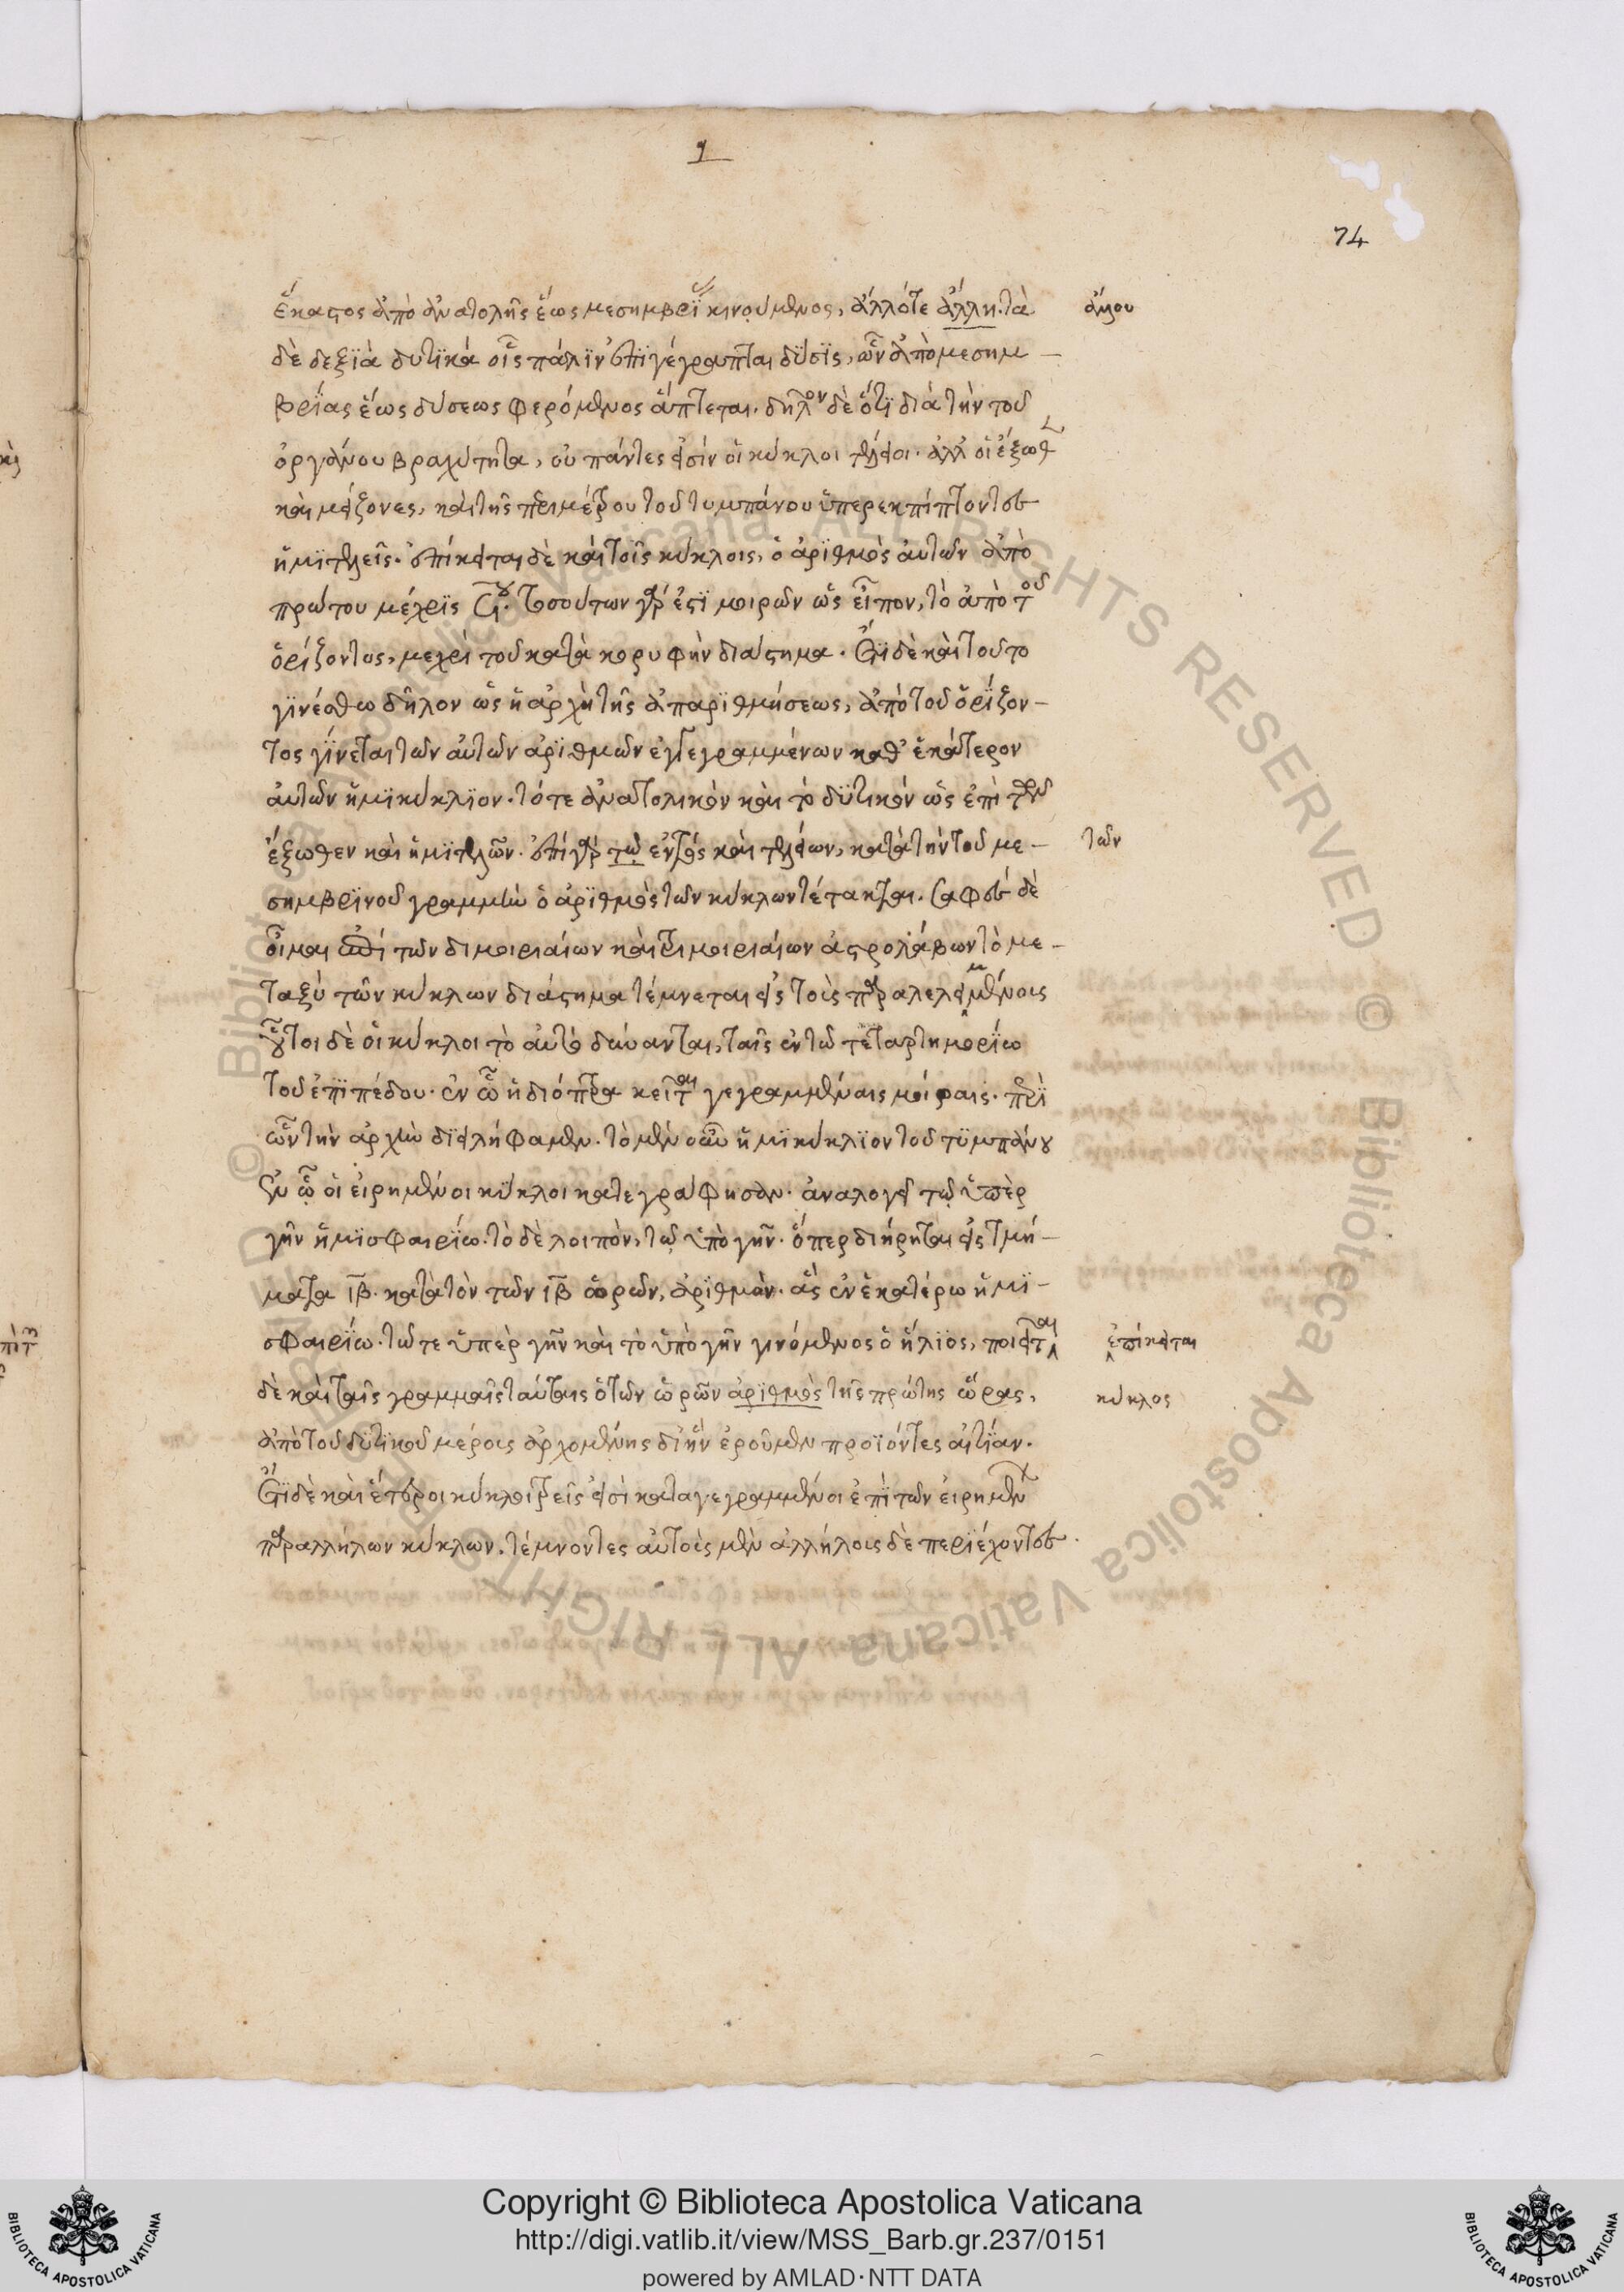 74
ἕκαστος ἀπὸ ἀνατολῆς ἕως μεσημβρί κινούμενος, ἄλλοτε ἄλλη. τὰ ἄλλου
δὲ δεξϊὰ δυτϊκά οἷς πάλϊν ἐπϊγέγραπται δύσϊς, ὧν ἀπὸ μεσημ-
βρίας ἕως δύσεως φερόμενος ἅπτεται. δῆλον δὲ ὅτϊ διὰ τὴν τοῦ
ὀργάνου βραχύτητα, οὐ πάντες εἰσὶν οἱ κύκλοι τέλειοι. ἀλλ' οἱ ἔξωθ
καὶ μείζονες, καὶ τῆς περιμέτρου τοῦ τυμπάνου ὑπερεκπίπτοντες
ἡμϊτελεῖς. ἐπίκειται δὲ καὶ τοῖς κύκλοις, ὁ ἀρϊθμὸς αὐτῶν ἀπὸ
πρώτου μέχρϊς. τοσούτων γάρ ἐστϊ μοιρῶν ὡς εἶπον, τὸ ἀπὸ τοῦ
ὁρίζοντος, μεχρὶ τοῦ κατὰ κορυφὴν διάστημα. Ἔτϊ δὲ καὶ τοῦτο
γϊνέσθω δῆλον ὡς ἡ ἀρχὴ τῆς ἀπαρϊθμήσεως, ἀπὸ τοῦ ὁρίζον-
τος γίνεται τῶν αὐτῶν ἀρϊθμῶν ἐγγεγραμμένων καθ' ἑκάτερον
αὐτῶν ἡμϊκύκλϊον. τό τε ἀνατολικὸν καὶ τὸ δϋτικόν ὡς ἐπὶ τῶν
ἔξωθεν καὶ ἡμϊτελῶν. ἐπὶ γὰρ τῷ ἐντὸς καὶ τελείων, κατὰ τὴν τοῦ με- τῶν
σημβρϊνοῦ γραμμὴν ὁ ἀρϊθμὸς τῶν κύκλων τέτακται. σαφὲς δὲ
οἶμαι τῶν διμοιριαίων καὶ τριμοιριαίων ἀστρολάβων τὸ με-
ταξὺ τῶν κύκλων διάστημα τέμνεται εἰς τοὺς παραλελειμμένους
οὗτοι δὲ οἱ κύκλοι τὸ αὐτὸ δύνανται, ταῖς ἐν τῶ τεταρτημορίω
τοῦ ἐπϊπέδου. ἐν ὧ ἡ διόπτρα κεῖται γεγραμμέναις μοίραις. περὶ
ὧν τὴν ἀρχὴν δϊειλήφαμεν. τὸ μὲν οὖν ἡμϊκύκλϊον τοῦ τϋμπάνου
ἐν ᾧ οἱ εἰρημένοι κύκλοι κατεγράφησαν. ἀναλογεῖ τῷ ὑπὲρ
γῆν ἡμϊσφαιρίω. τὸ δὲ λοιπὸν, τῶ ὑπὸ γῆν. ὅπερ διῄρηται εἰς τμή-
ματα ιβ. κατὰ τὸν τῶν ιβ ὡρῶν, ἀρϊθμὸν. ἃς ἐν ἑκατέρω ἡμϊ-
σφαιρίω. τῶ τε ὑπὲρ γῆν καὶ τὸ ὑπὸ γῆν γινόμενος ὁ ἥλϊος, ποιεῖται ἐπίκειται
δὲ καὶ ταῖς γραμμαῖς ταύταις ὁ τῶν ὡρῶν ἀρϊθμὸς τῆς πρώτης ὥρας, κύκλος
ἀπὸ τοῦ δϋτϊκοῦ μέρους ἀρχομένης δϊ' ἣν ἐροῦμεν προϊόντες αἰτίαν.
Ἔτϊ δὲ καὶ ἕτεροι κύκλοι τρεῖς εἰσὶ καταγεγραμμένοι ἐπὶ τῶν εἰρημένων
παραλλήλων κύκλων. τέμνοντες αὐτοὺς μὲν ἀλλήλους δὲ περϊέχοντες.
Copyright © Biblioteca Apostolica Vaticana
http://digi.vatlib.it/view/MSS_Barb.gr.237/0151
powered by AMLAD·NTT DATA
BIBLIOTECA APOSTOLICA VATICANA
BIBLIOTECA APOSTOLICA VATICANA